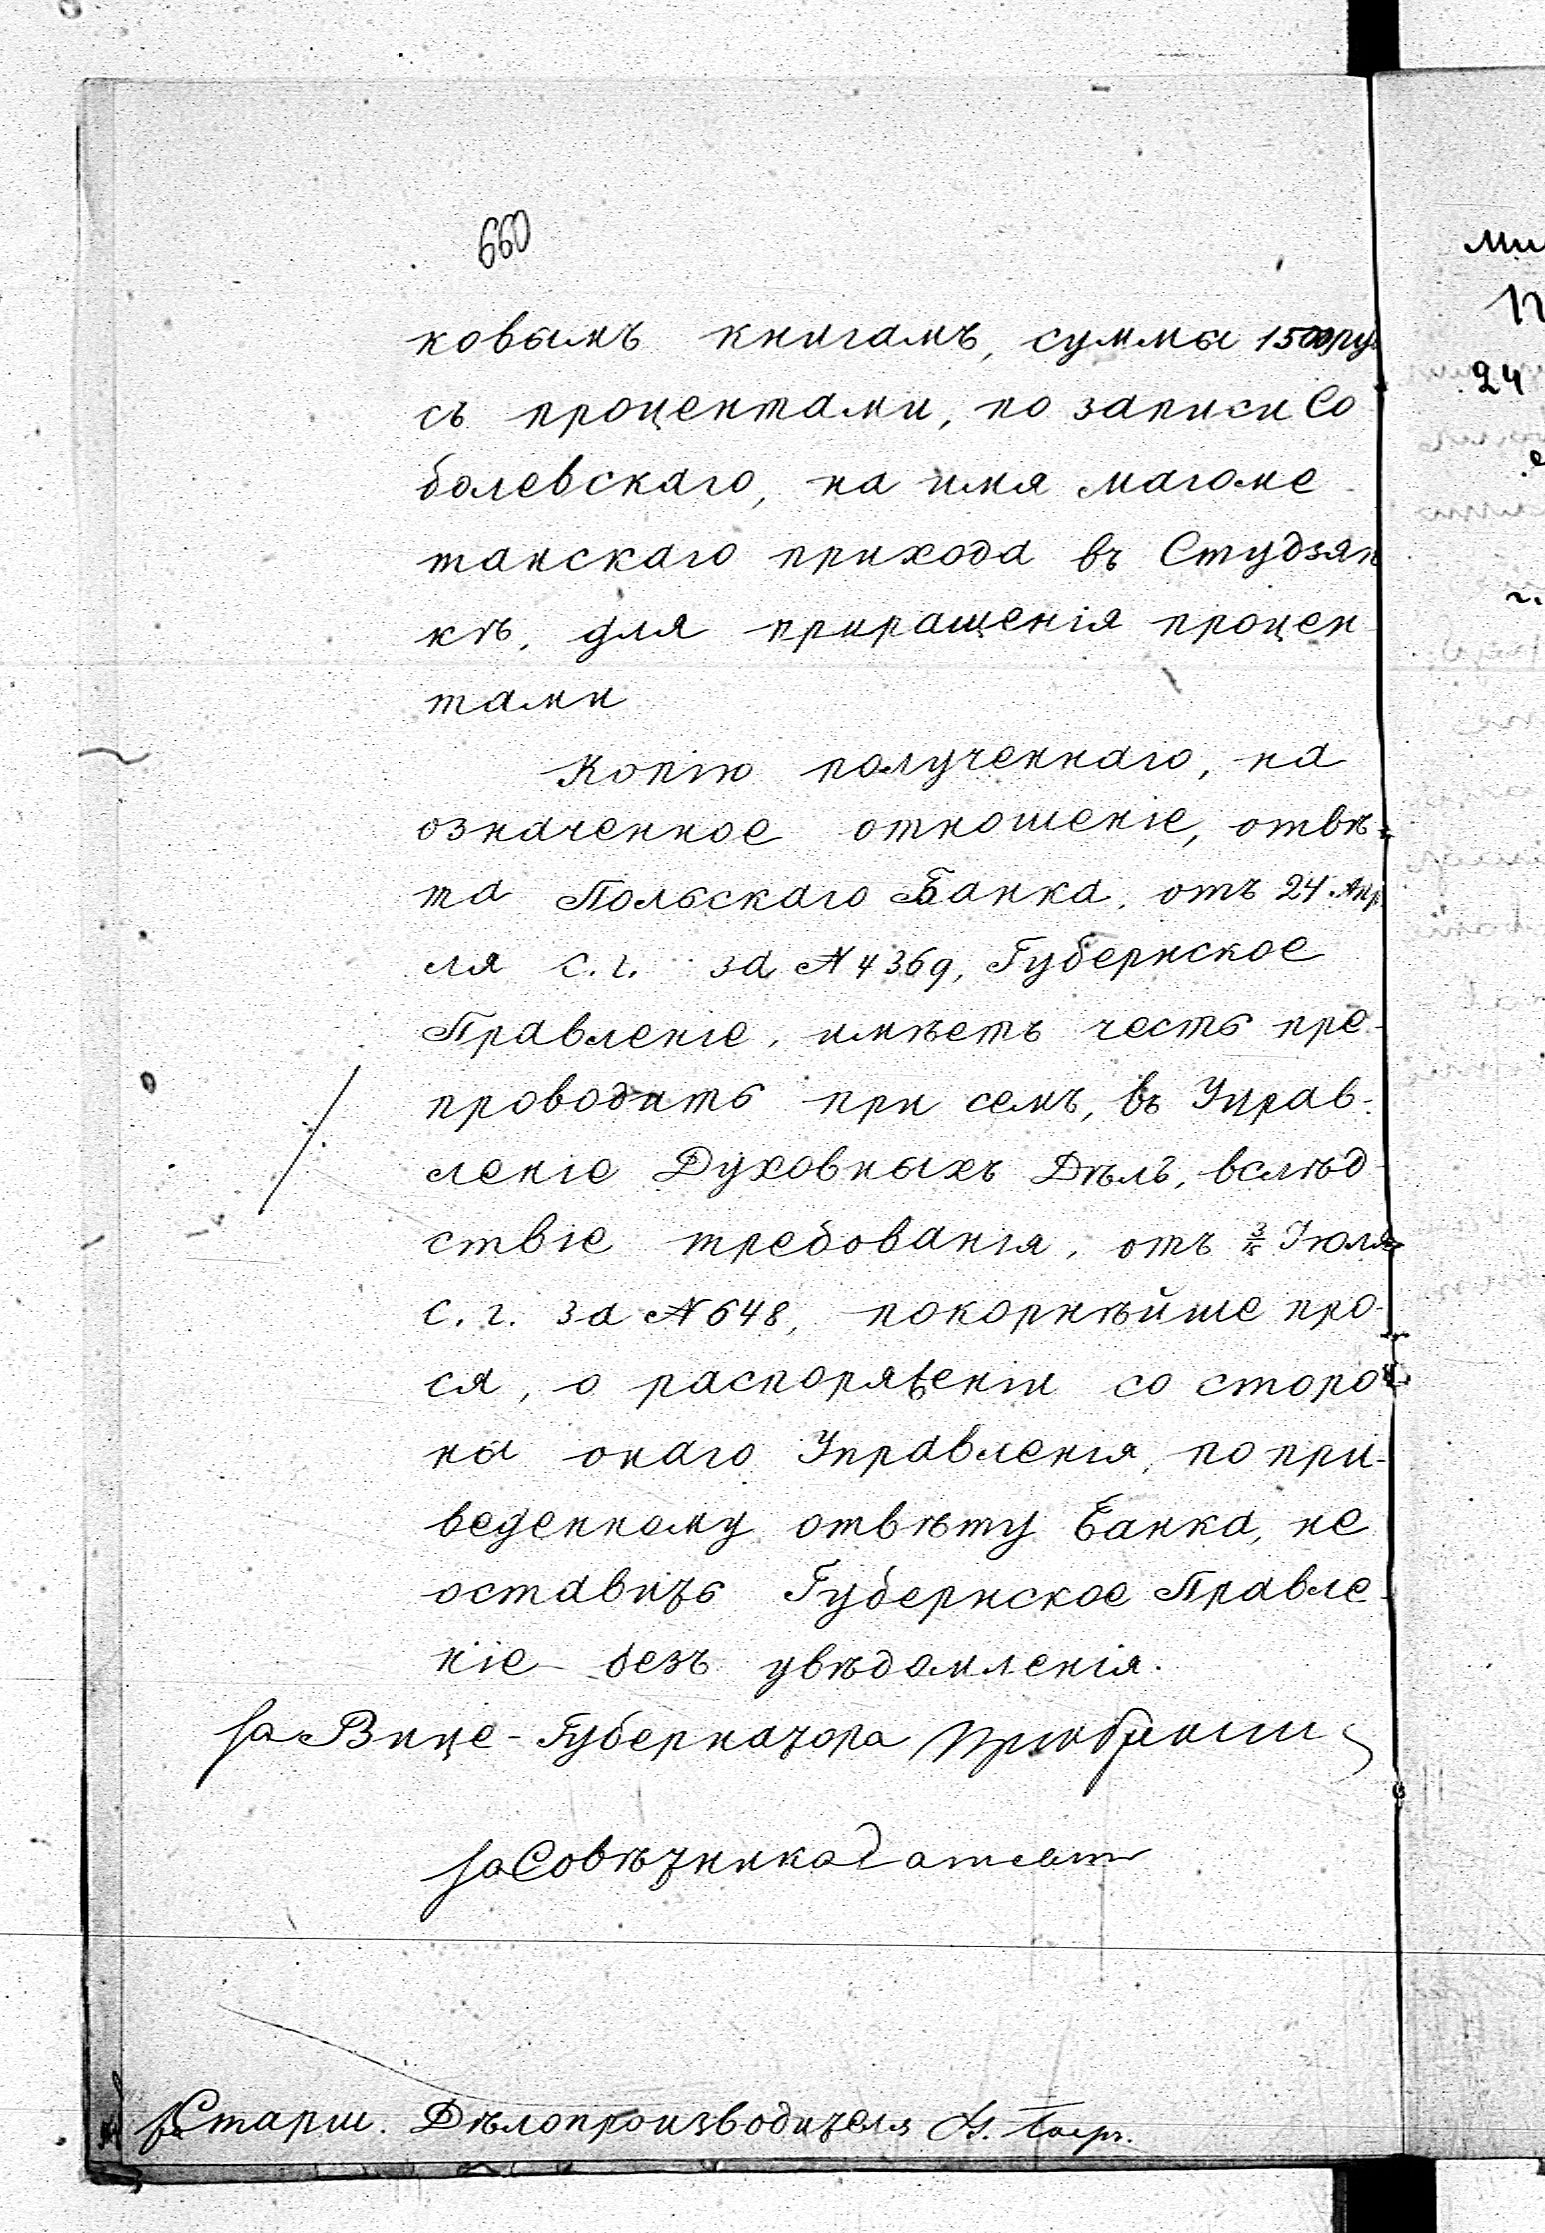 660
ковымъ книгамъ, суммы 1500 ру
съ процентами, по записи Со
болевскаго, на имя магоме
танскаго прихода въ Студзян
кѣ, для приращенія процен
тами
Копію полученнаго, на
означенное отношеніе, отвѣ-
та Польскаго Банка, отъ 24 Апр
ля с. г. за № 4369, Губернское
Правленіе, имѣетъ честь пре-
проводить при семъ, въ Управ-
леніе Духовныхъ Дѣлъ, вслѣд
ствіе требованія, отъ Іюля
с. г. за № 648, покорнѣйше про-
ся, о распоряженіи со сторо
ны онаго Управленія, по при-
веденному отвѣту Банка, не
оставить Губернское Правле-
ніе безъ увѣдомленія.
за Вице-Губернатора
за Совѣтника
за Старш. Дѣлопроизводителя
24